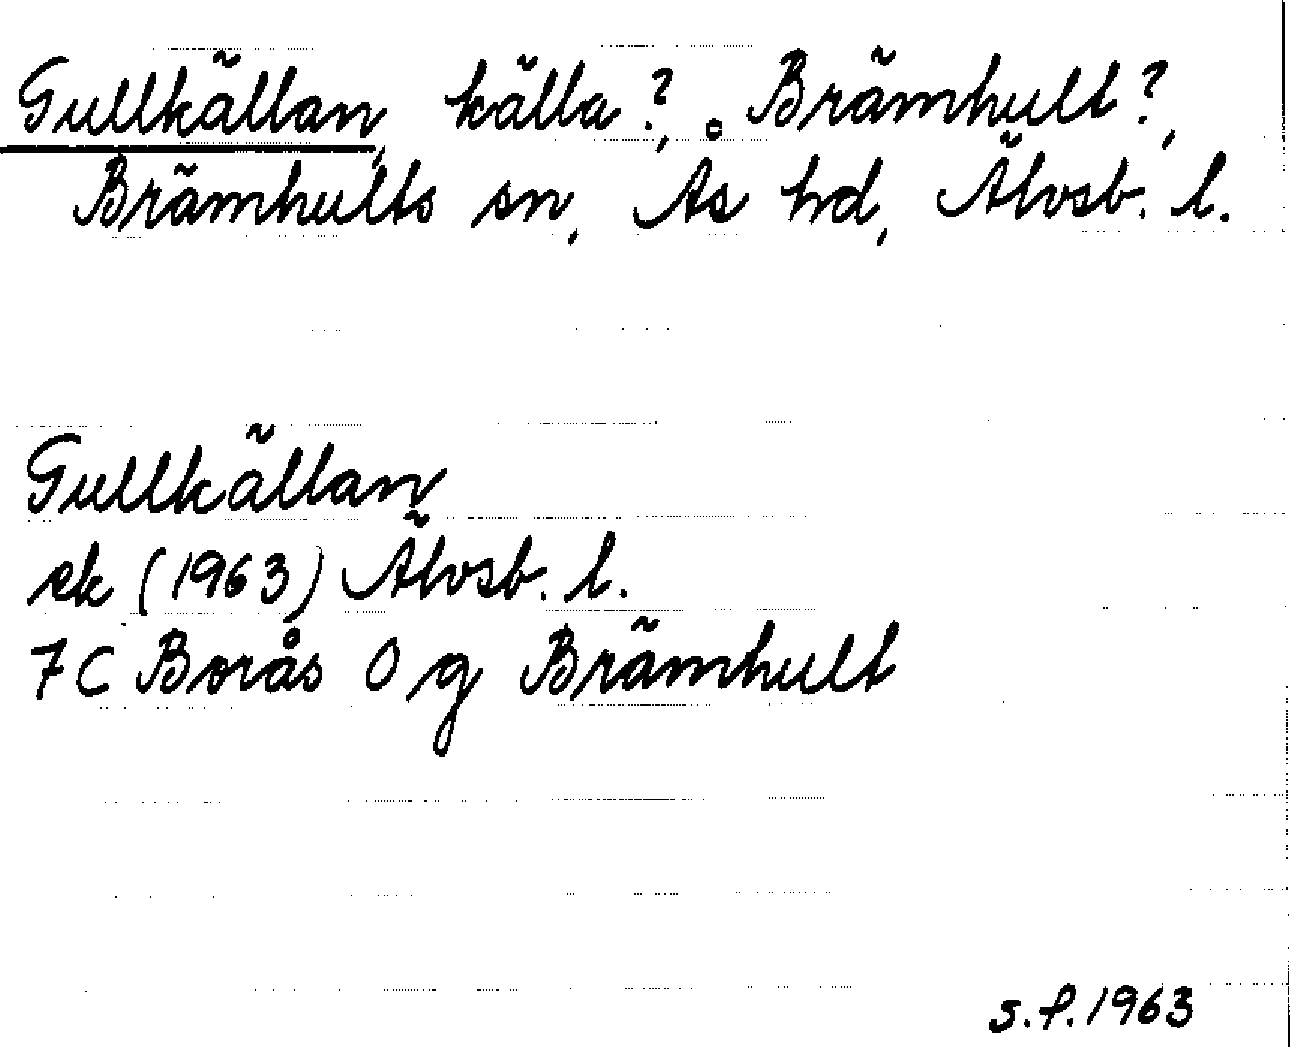 Gullkällan, källa?, Brämhult?,
Brämhults sn, Ås hd, Älvsb. l.
Gullkällan
ek (1963) Älvsb. l.
7 C Borås 0 g Brämhult
s.f. 1963